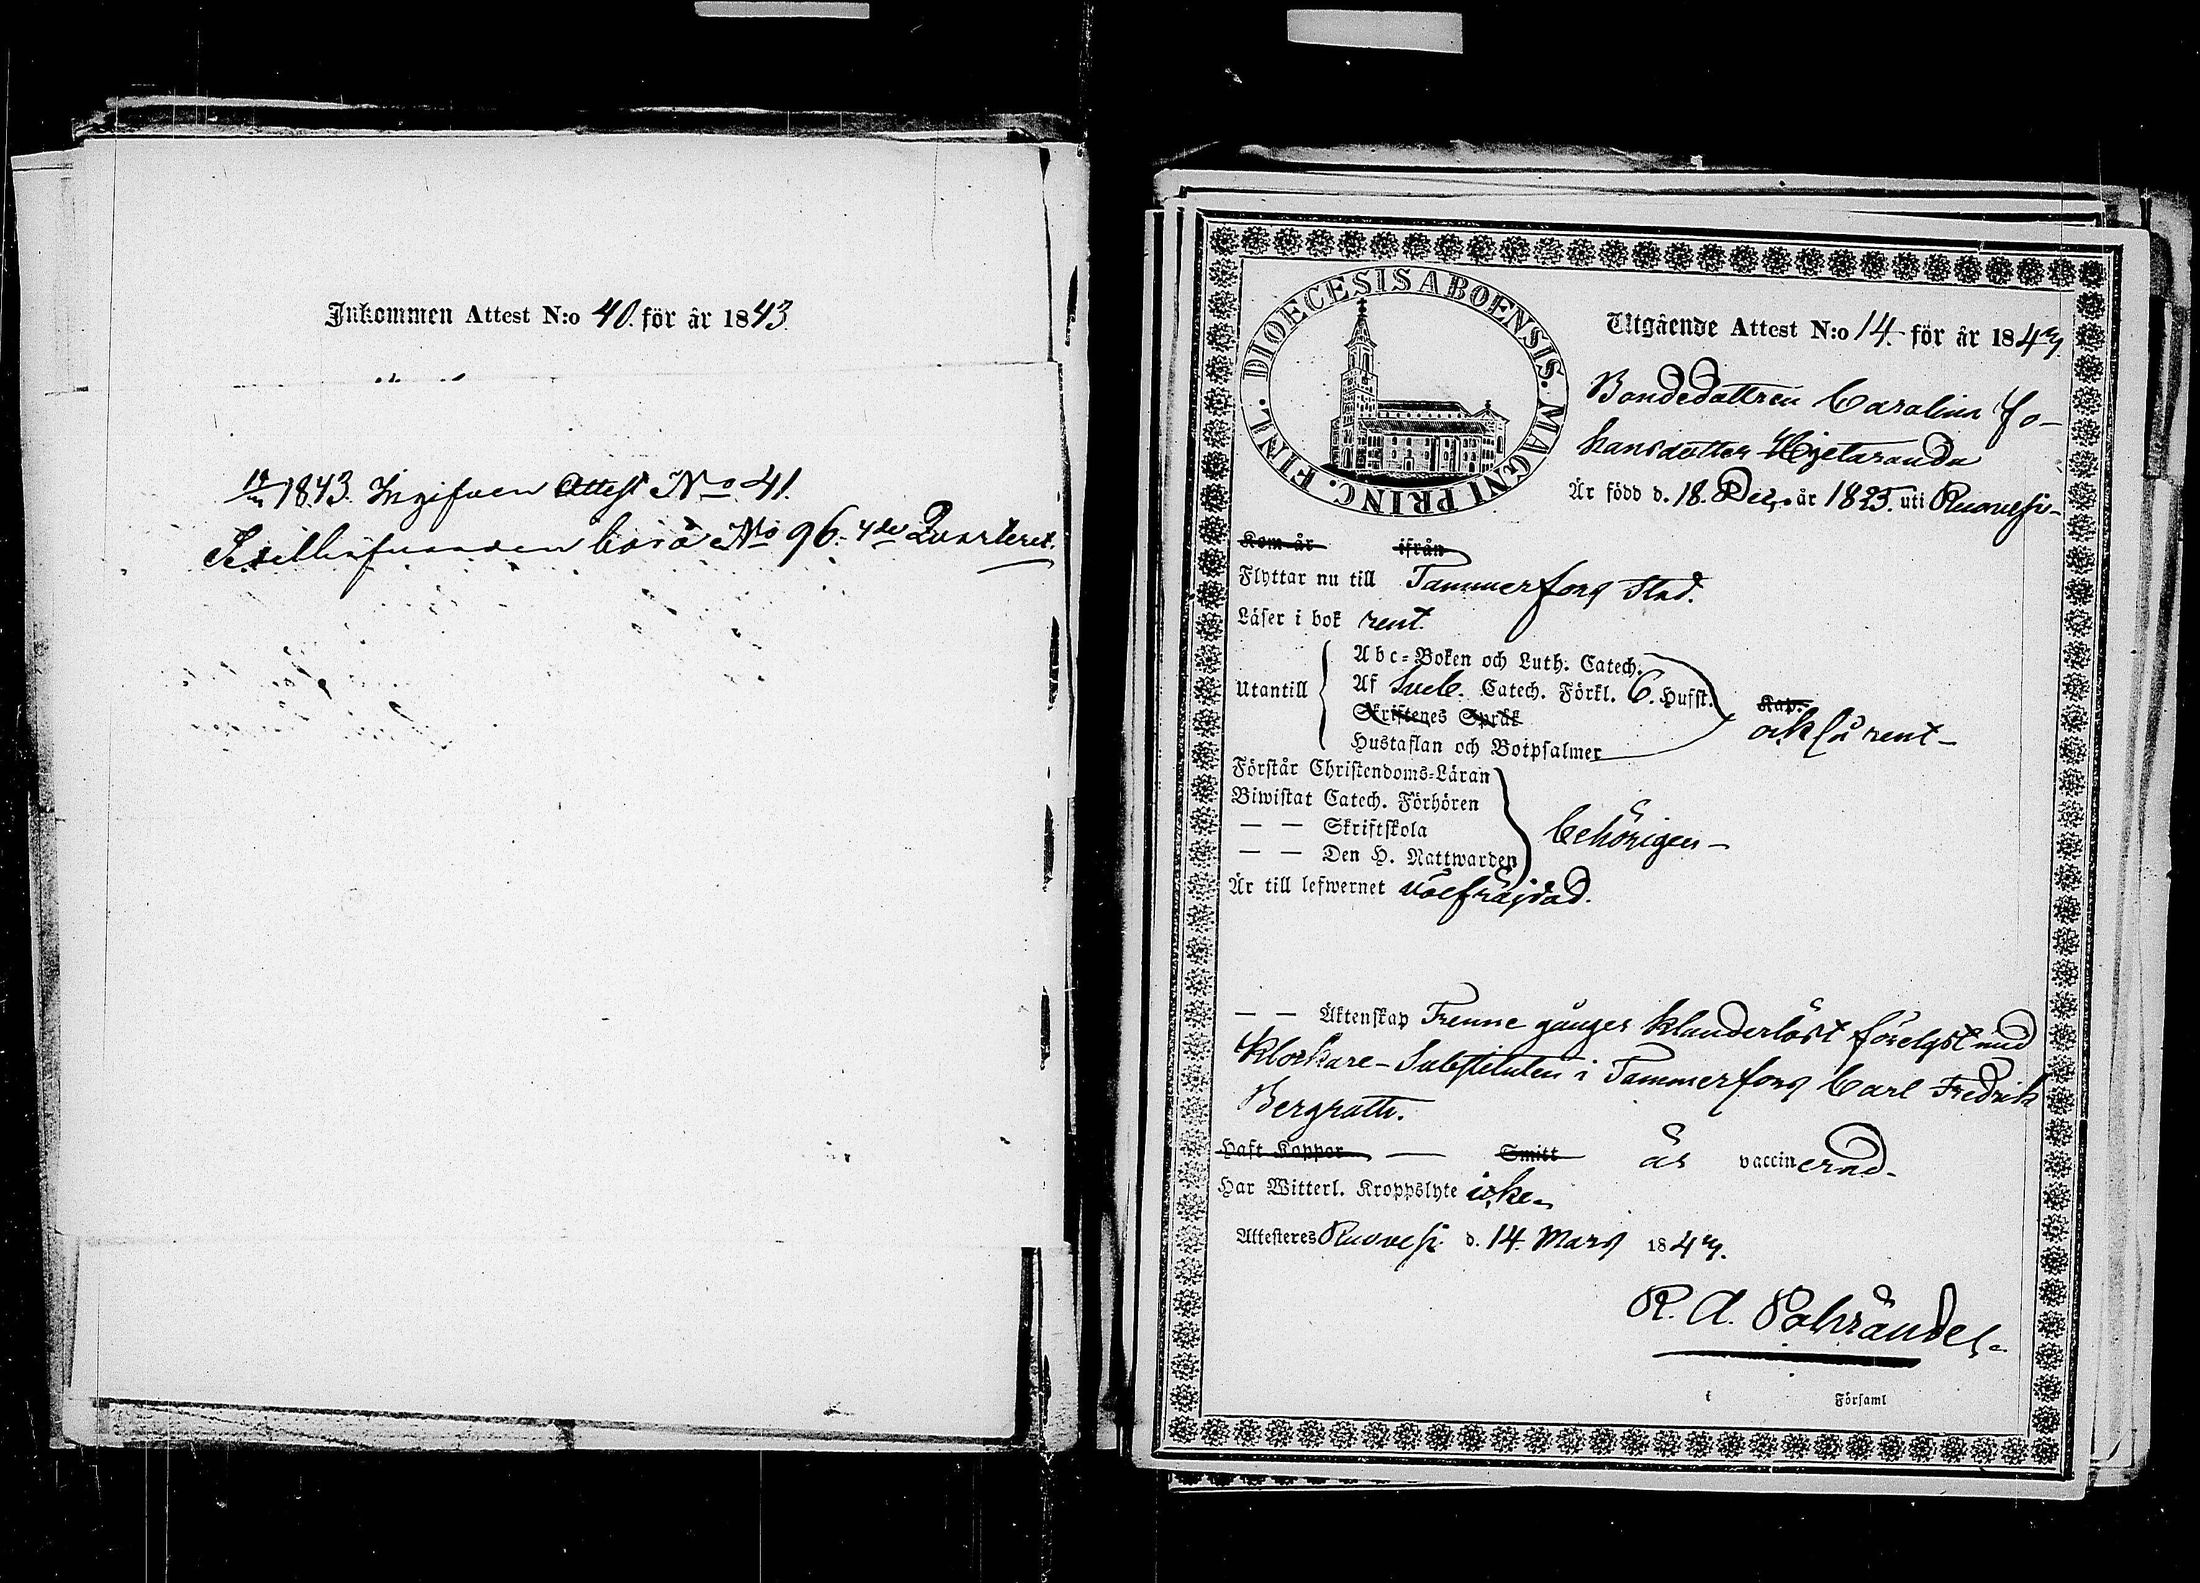 Inkommen Attest N:o 40. för år 1843.
1843. Ingifven Attest No 41.
boså No 96. 4de Quarteret.
DIOECESIS ABOENSIS. MAGNI PRINC. FINL.
Utgående Attest N:o 14. för år 1847.
Bondedottren Carolina Jo-
hansdotter Hjetaranda
Är född d. 18. Dec. år 1825. uti Ruovesi-
Kom år ifrån
Flyttar nu till Tammerfors Stad.
Läser i bok rent.
Utantill
Abc-Boken och Luth. Catech.
Af Sveb. Catech. Förkl. 6. Hufst. Kap.
Skriftenes Språk
också rent-
Hustaflan och Botpsalmer
Förstår Christendoms-Läran
Biwistat Catech. Förhören
— — Skriftskola
behörigen-
— — Den H. Nattwarden
Är till lefwernet välfräjdad.
— — Äktenskap Trenne gånger klanderlöst förelyst med
Klockare-Substituten i Tammerfors Carl Fredrik
Bergroth.
Haft Koppor — Smitt är vaccinerad-
Har Witterl. Kroppslyte icke-
Attesteres Ruovesi d. 14. Mars 1847.
R. A.
i Församl